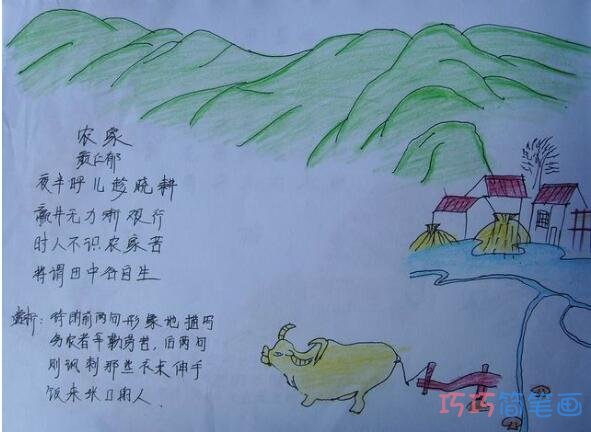 农家
颜仁郁
夜半呼儿趁晓耕
羸牛无力渐艰行
时人不识农家苦
将谓田中谷自生
赏析：诗的前两句形象地描写
务农者辛勤劳苦，后两句
则讽刺那些衣来伸手
饭来张口的人.
巧巧简笔画